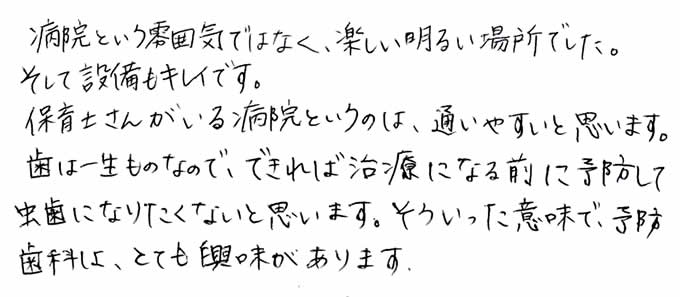 病院という雰囲気ではなく、楽しい明るい場所でした。
そして設備もキレイです。
保育士さんがいる病院というのは、通いやすいと思います。
歯は一生ものなので、できれば治療になる前に予防して
虫歯になりたくないと思います。そういった意味で、予防
歯科は、とても興味があります.